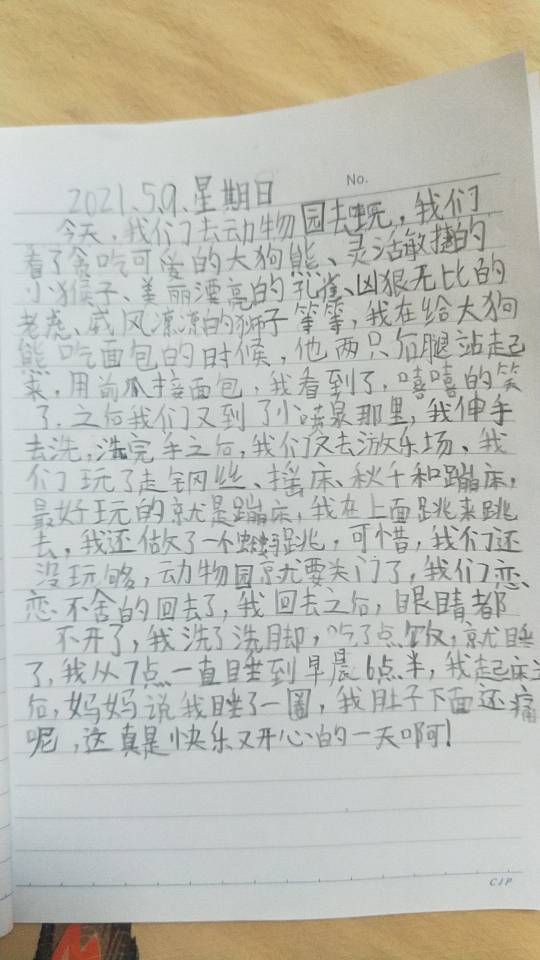 No.
2021.5.9.星期日
今天,我们去动物园去玩,我们
看了贪吃可爱的大狗熊、灵活敏捷的
小猴子、美丽漂亮的孔雀、凶狠无比的
老虎、威风凛凛的狮子等等,我在给大狗
熊吃面包的时候,他两只后腿站起
来,用前爪接面包,我看到了,嘻嘻的笑
了,之后我们又到了小喷泉那里,我伸手
去洗,洗完手之后,我们又去游乐场、我
们玩了走钢丝、摇床、秋千和蹦床,
最好玩的就是蹦床,我在上面跳来跳
去,我还做了一个跳,可惜,我们还
没玩够,动物园就要关门了,我们恋
恋不舍的回去了,我回去之后,眼睛都
不开了,我洗了洗脚,吃了点饭,就睡
了,我从7点一直睡到早晨6点半,我起床之
后,妈妈说我睡了一圈,我肚子下面还痛
呢,这真是快乐又开心的一天啊!
CIP